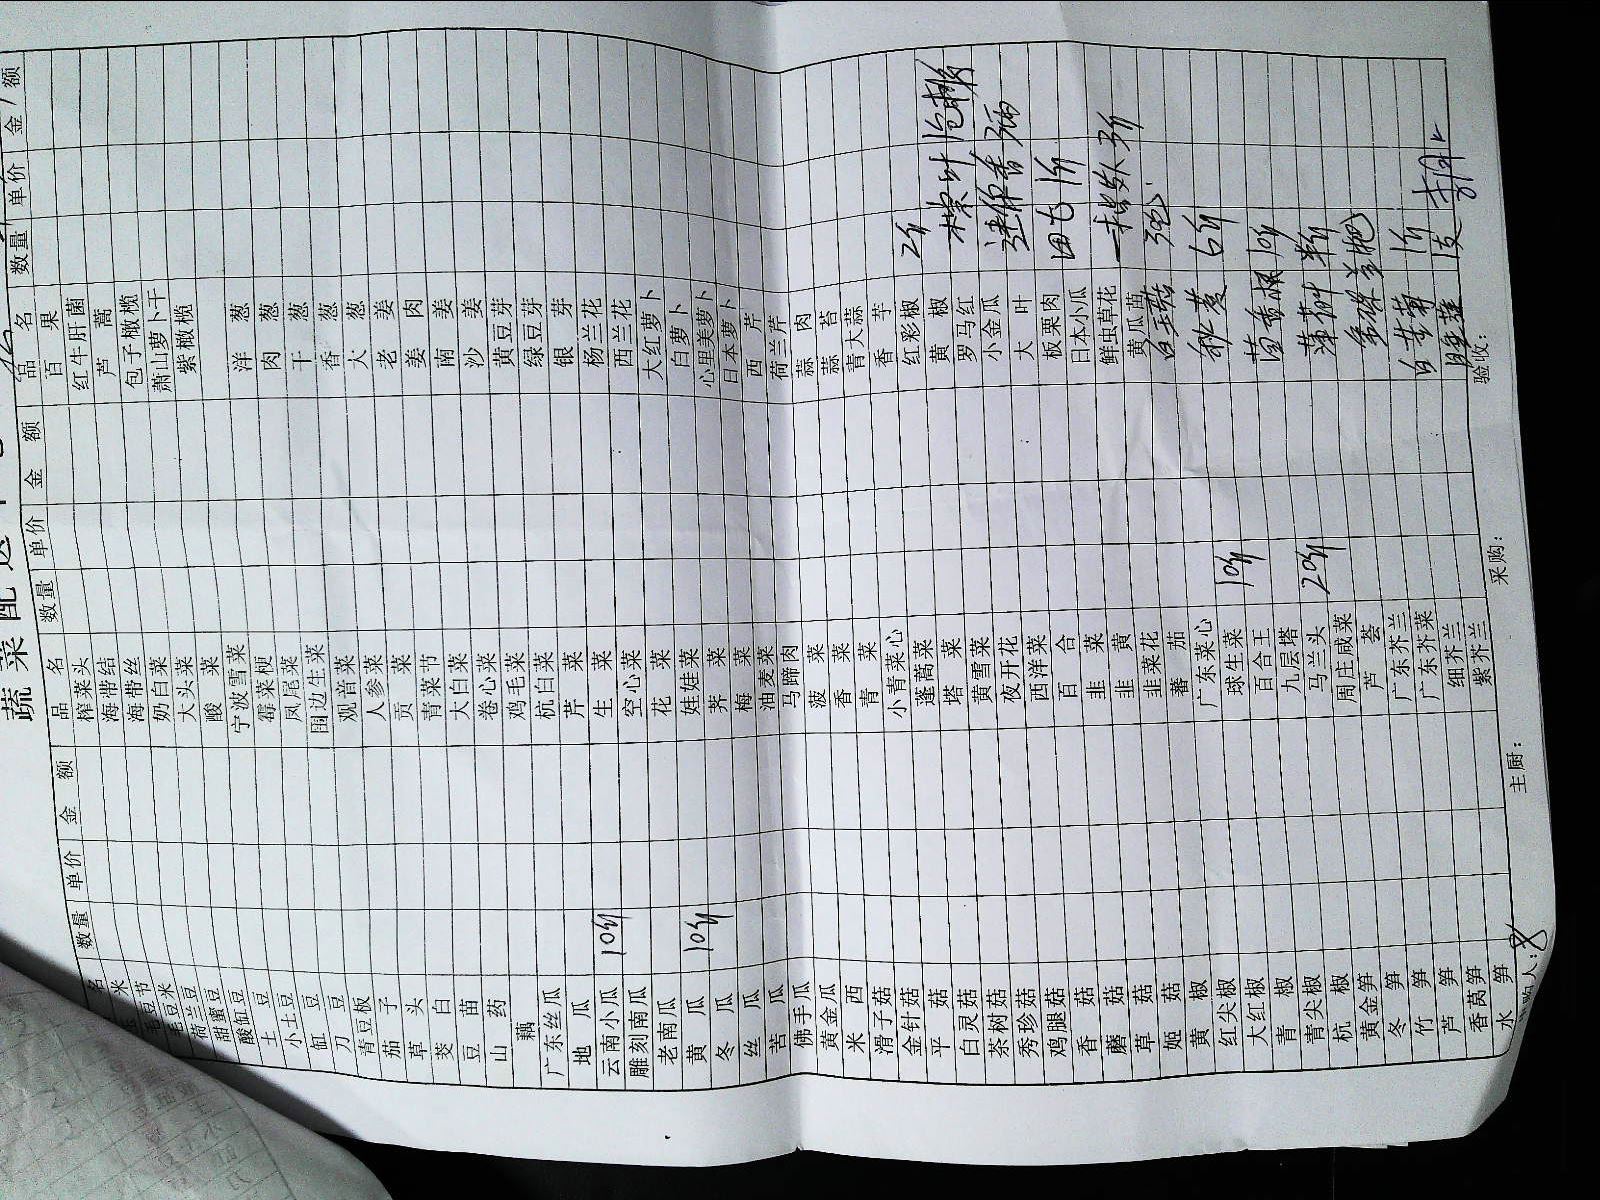 蔬菜配送单
名 数量 单价 金额
米
毛豆节
毛豆米
荷兰豆
甜蜜豆
酸缸豆
土豆
小土豆
缸豆
刀豆
青豆板
茄子
草头
茭白
豆苗
山药
藕
广东丝瓜
地瓜
云南小瓜 10斤
雕刻南瓜
老南瓜
黄瓜 10斤
冬瓜
丝瓜
苦瓜
佛手瓜
黄金瓜
米西
滑子菇
金针菇
平菇
白灵菇
茶树菇
秀珍菇
鸡腿菇
香菇
蘑菇
草菇
姬菇
黄椒
红尖椒
大红椒
青椒
青尖椒
杭椒
黄金笋
冬笋
竹笋
芦笋
香莴笋
水笋
品名 数量 单价 金额
榨菜头
海带结
海带丝
奶白菜
大头菜
酸菜
宁波雪菜
霉菜梗
凤尾菜
围边生菜
观音菜
人参菜
贡菜
青菜节
大白菜
卷心菜
鸡毛菜
杭白菜
芹菜
生菜
空心菜
花菜
娃娃菜
荠菜
梅菜
油麦菜
马蹄肉
菠菜
香菜
青菜
小青菜心
蓬蒿菜
塔菜
黄雪菜
夜开花
西洋菜
百合
韭菜
韭黄
韭菜花
蕃茄
广东菜心
球生菜 10斤
百合王
九层塔
马兰头 20斤
周庄咸菜
芦荟
广东芥兰
广东芥菜
细芥兰
紫芥兰
品名 数量 单价 金额
百果
红牛肝菌
芦蒿
包子橄榄
萧山萝卜干
紫橄榄
洋葱
肉葱
干葱
香葱
大葱
老姜
姜肉
南姜
沙姜
黄豆芽
绿豆芽
银芽
杨兰花
西兰花
大红萝卜
白萝卜
心里美萝卜
日本萝卜
西芹
荷兰芹
蒜肉
蒜苔
青大蒜
香芋
红彩椒 2斤
黄椒
罗马红
小金瓜
大叶
板栗肉
日本小瓜
鲜虫草花
黄瓜苗
白玉菇 3包
秋葵 6斤
茴香根 10斤
薄荷叶 半斤
1斤
1支
主厨：
采购：
验收：
购人：